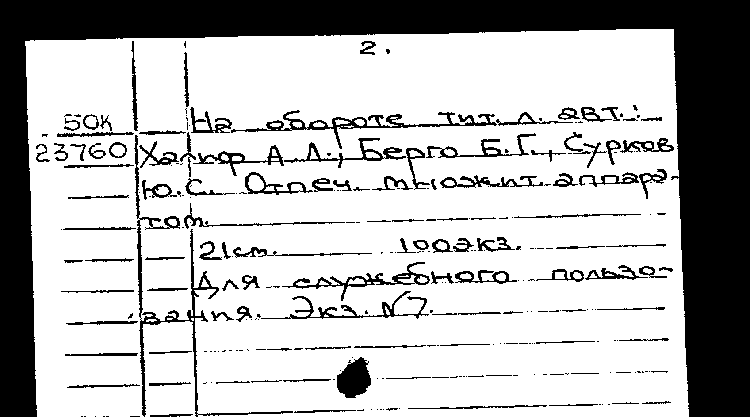 2.
50К На обороте тит. л. авт.:
23760 Халиф А.Л., Берго Б.Г., Сурков
Ю.С. Отпеч. множит. аппара-
том.
21см. 100экз.
Для служебного пользо-
вания. Экз. №7.